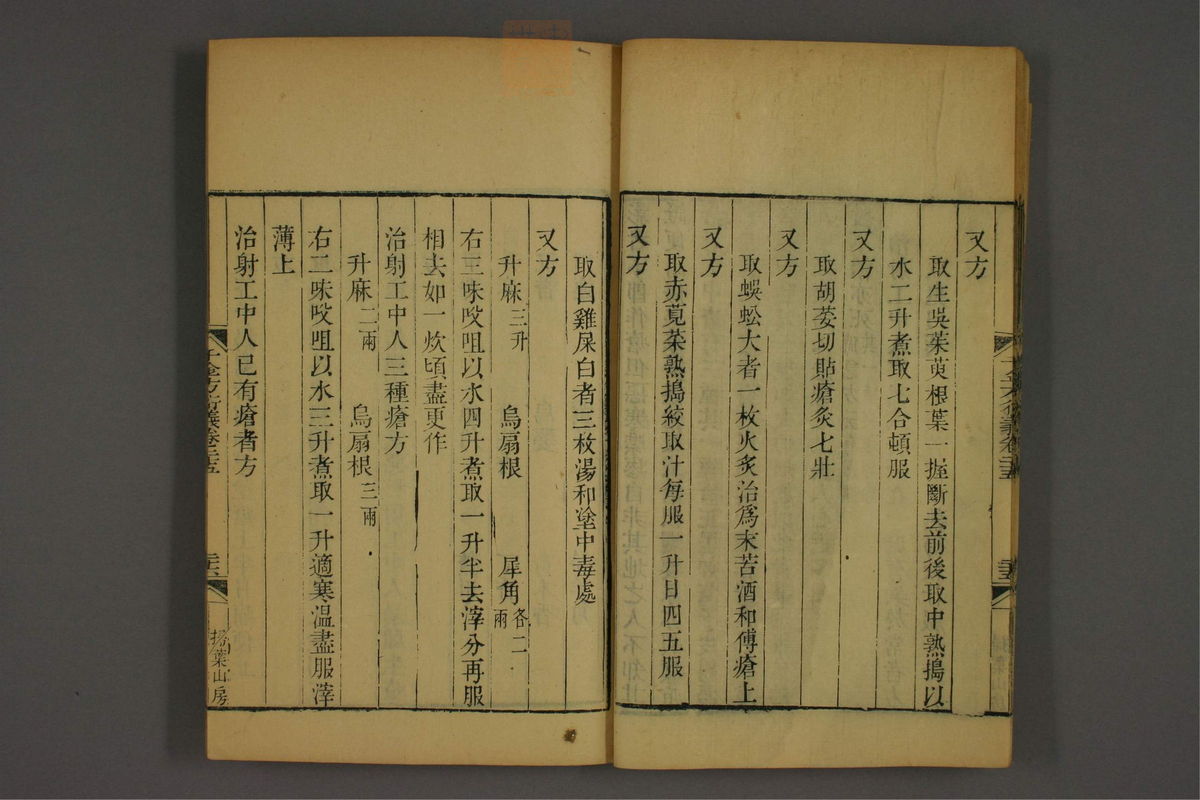 又方
取生吳茱萸根葉一握斷去前後取中熟搗以
水二升煮取七合頓服
又方
取胡荽切貼瘡灸七壯
又方
取蜈蚣大者一枚火炙治爲末苦酒和傅瘡上
又方
取赤莧莖熟搗絞取汁每服一升日四五服
又方
取白雞屎白者三枚湯和塗中毒處
又方
升麻三升 烏扇根 犀角各二兩
右三味㕮咀以水四升煮取一升半去滓分再服
相去如一炊頃盡更作
治射工中人三種瘡方
升麻二兩 烏扇根三兩
右二味㕮咀以水三升煮取一升適寒温盡服滓
薄上
治射工中人已有瘡者方
千金方衍義卷二十五
掃葉山房